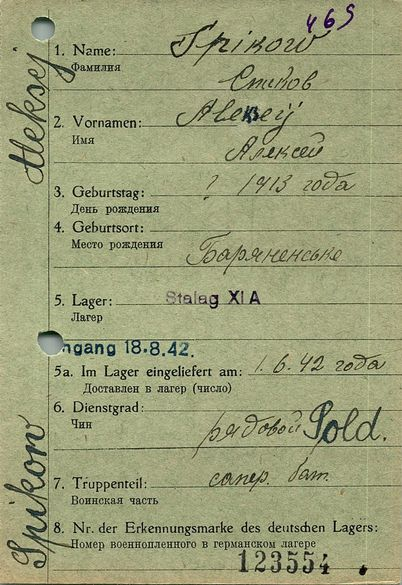 469
1. Name: Spikow
Фамилия
Спиков
2. Vornamen: Aleksej
Имя
Алексей
3. Geburtstag: ? 1913 года
День рождения
4. Geburtsort:
Место рождения
5. Lager: Stalag XI A
Лагер
ngang 18.8.42.
5a. Im Lager eingeliefert am: 1.6.42 года
Доставлен в лагер (число)
6. Dienstgrad:
Чин
рядовой Sold.
7. Truppenteil: сапер. бат.
Воинская часть
8. Nr. der Erkennungsmarke des deutschen Lagers:
Номер военнопленного в германском лагере
123554
Spikow Aleksej